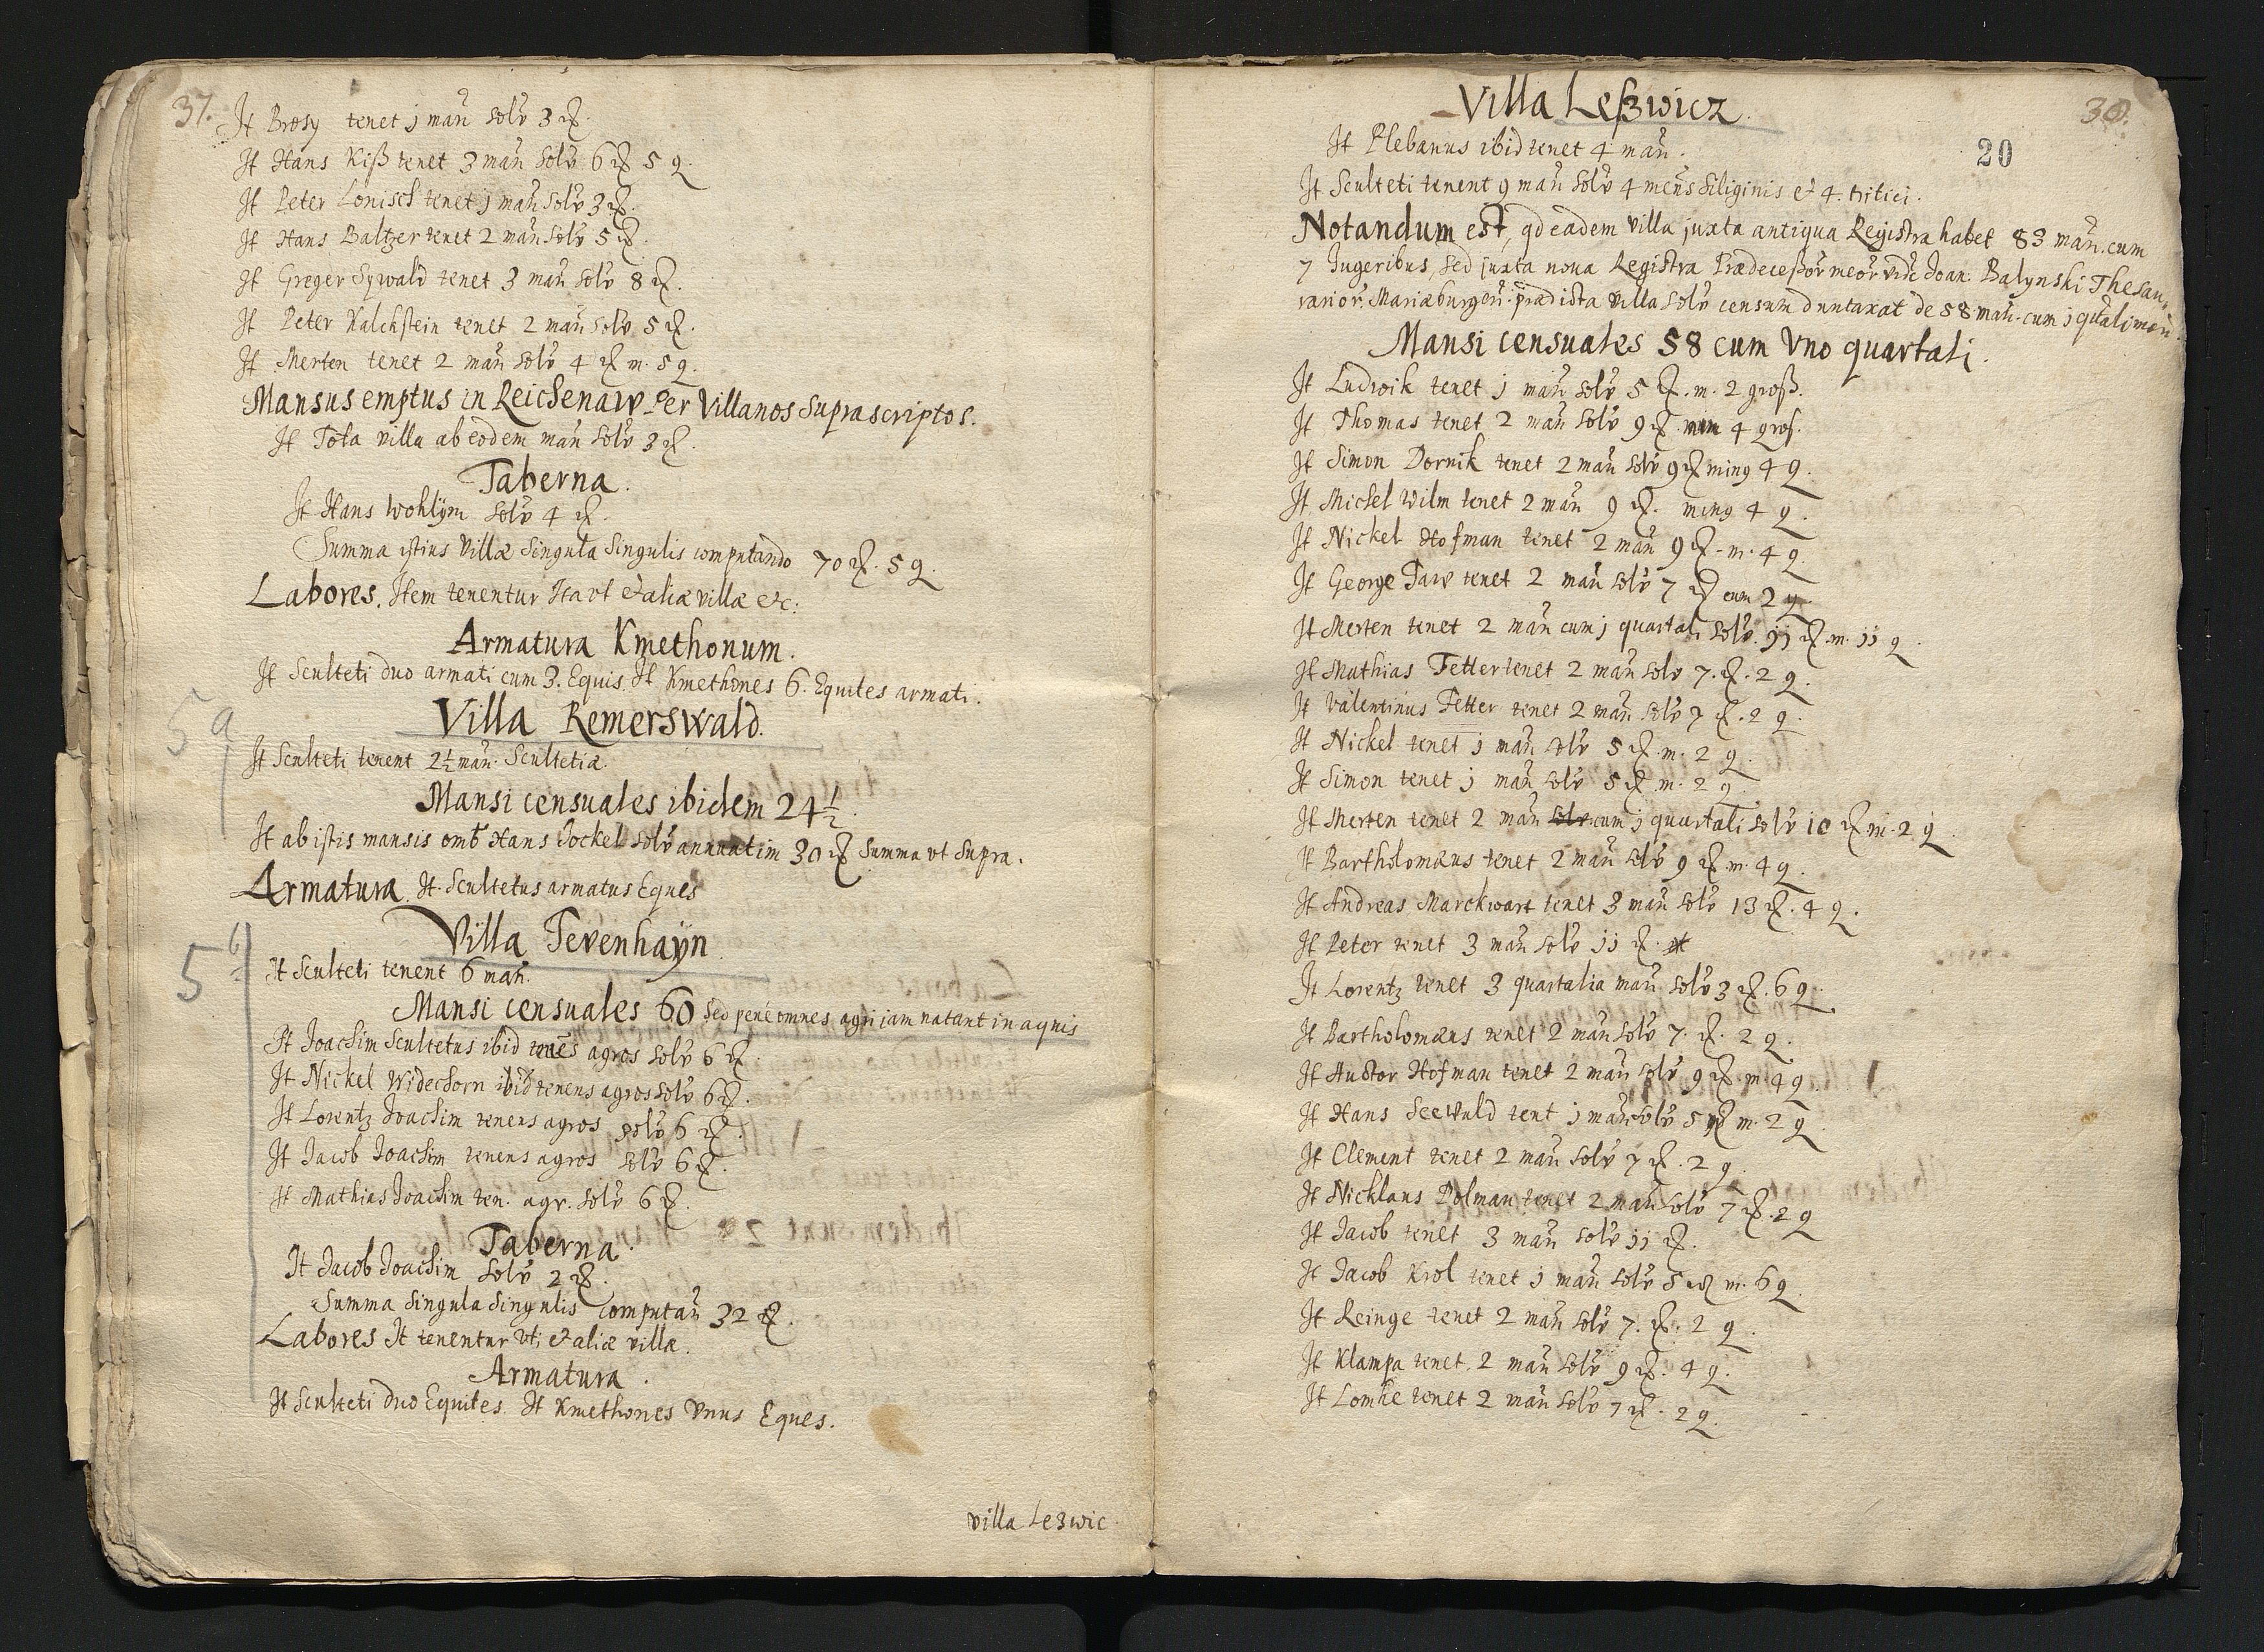 37.
It Brosy tenet j man̄ solv̄ 3 ₰.
It Hans Kiß tenet 3 man̄ solv̄ 6 ₰ 5 q.
It Peter Lonisch tenet j man̄ solv̄ 3 ₰.
It Hans Baltzer tenet 2 man̄ solv̄ 5 ₰.
It Greger Sywald tenet 3 man̄ solv̄ 8 ₰.
It Peter Kalckstein tenet 2 man̄ solv̄ 5 ₰.
It Merten tenet 2 man̄ solv̄ 4 ₰ m. 5 q.
Mansus emptus in Reichenaw Per Villanos Suprascriptos.
It Tota villa ab eodem man̄ solv̄ 3 ₰.
Taberna.
It Hans Wohlÿm solv̄ 4 ₰.
Summa istius Villæ Singula Singulis computando 70 ₰. 5 q.
Labores. Item tenentur et aliæ villæ etc:
Armatura Kmethonum.
It Sculteti duo armati cum 3. Equis. It Kmethones 6. Equites armati.
5 a
Villa Remerswald.
It Sculteti tenent 2½ man̄. Scultetiæ.
Mansi censuales ibidem 24½.
It ab istis mansis omb Hans Jockel solv̄ annuatim 30 ₰ Summa vt Supra.
Armatura. It. Scultetus armatus Eques
5 b
Villa Tevenhaÿn.
It Sculteti tenent 6 man̄.
Mansi censuales 60 Sed pene omnes agri jam natant in aquis
It Joachim Scultetus ibid tenēs agros solv̄ 6 ₰.
It Nickel Widechorn ibid tenens agros solv̄ 6 ₰.
It Lorentz Joachim tenens agros solv̄ 6 ₰.
It Jacob Joachim tenens agros solv̄ 6 ₰.
It Mathias Joachim ten. agr. solv̄ 6 ₰.
Taberna.
It Jacob Joachim solv̄ 2 ₰.
Summa Singula Singulis computan̄ 32 ₰.
Labores It tenentur vti et aliæ villæ.
Armatura.
It Sculteti duo Equites. It Kmethones Vnus Eques.
villa Leßwic
Villa Leßwicz.
38.
20
It Plebanus ibid tenet 4 man̄.
It Sculteti tenent 9 man̄ solv̄ 4 mens Siliginis et 4. tritici.
Notandum est, qd eadem villa juxta antiqua Registra habet 83 man̄. cum
7 Jugeribus, sed juxta nova Registra Prædeceßor̄ meor̄ vidc̄ Joan: Balynski Thesau=
rarior̄. Mariæburgen̄. prædicta villa solv̄ censum duntaxat de 58 man̄. cum j qrtali man̄
Mansi censuales 58 cum Vno quartali.
It Ludwik tenet j man̄ solv̄ 5 ₰. m. 2 groß.
It Thomas tenet 2 man̄ solv̄ 9 ₰ min 4 gros.
It Simon Dornik tenet 2 man̄ solv̄ 9 ₰ ming 4 q.
It Michel Wilm tenet 2 man̄ 9 ₰. ming 4 q.
It Nickel Hofman tenet 2 man̄ 9 ₰ - m. 4 q.
It George Taw tenet 2 man̄ solv̄ 7 ₰ cum 2 q
It Merten tenet 2 man̄ cum j quartali solv̄. jj ₰. m. jj q.
It Mathias Fetter tenet 2 man̄ solv̄ 7. ₰. 2 q.
It Valentinus Fetter tenet 2 man̄ solv̄ 7 ₰. 2 q.
It Nickel tenet j man̄ solv̄ 5 ₰. m. 2 q.
It Simon tenet j man̄ solv̄ 5 ₰ m. 2 q.
It Merten tenet 2 man̄ solv̄ cum j quartali solv̄ 10 ₰ m. 2 q.
It Bartholomæus tenet 2 man̄ solv̄ 9 ₰ m. 4 q.
It Andreas Marckwart tenet 3 man̄ solv̄ 13 ₰. 4 q.
It Peter tenet 3 man̄ solv̄ jj ₰.
It Lorentz tenet 3 quartalia man̄ solv̄ 3 ₰. 6 q.
It Bartholomæus tenet 2 man̄ solv̄ 7. ₰. 2 q.
It Austor Hofman tenet 2 man̄ solv̄ 9 ₰. m. 4 q.
It Hans Seewald tent j man̄ solv̄ 5 ₰ m. 2 q.
It Clement tenet 2 man̄ solv̄ 7 ₰. 2 q.
It Nicklaus Polman tenet 2 man̄ solv̄ 7 ₰. 2 q
It Jacob tenet 3 man̄ solv̄ jj ₰.
It Jacob Krol tenet j man̄ solv̄ 5 ₰ m. 6 q.
It Reinge tenet 2 man̄ solv̄ 7. ₰. 2 q.
It Klampa tenet. 2 man̄ solv̄ 9 ₰. 4 q.
It Lomke tenet 2 man̄ solv̄ 7 ₰. 2 q.